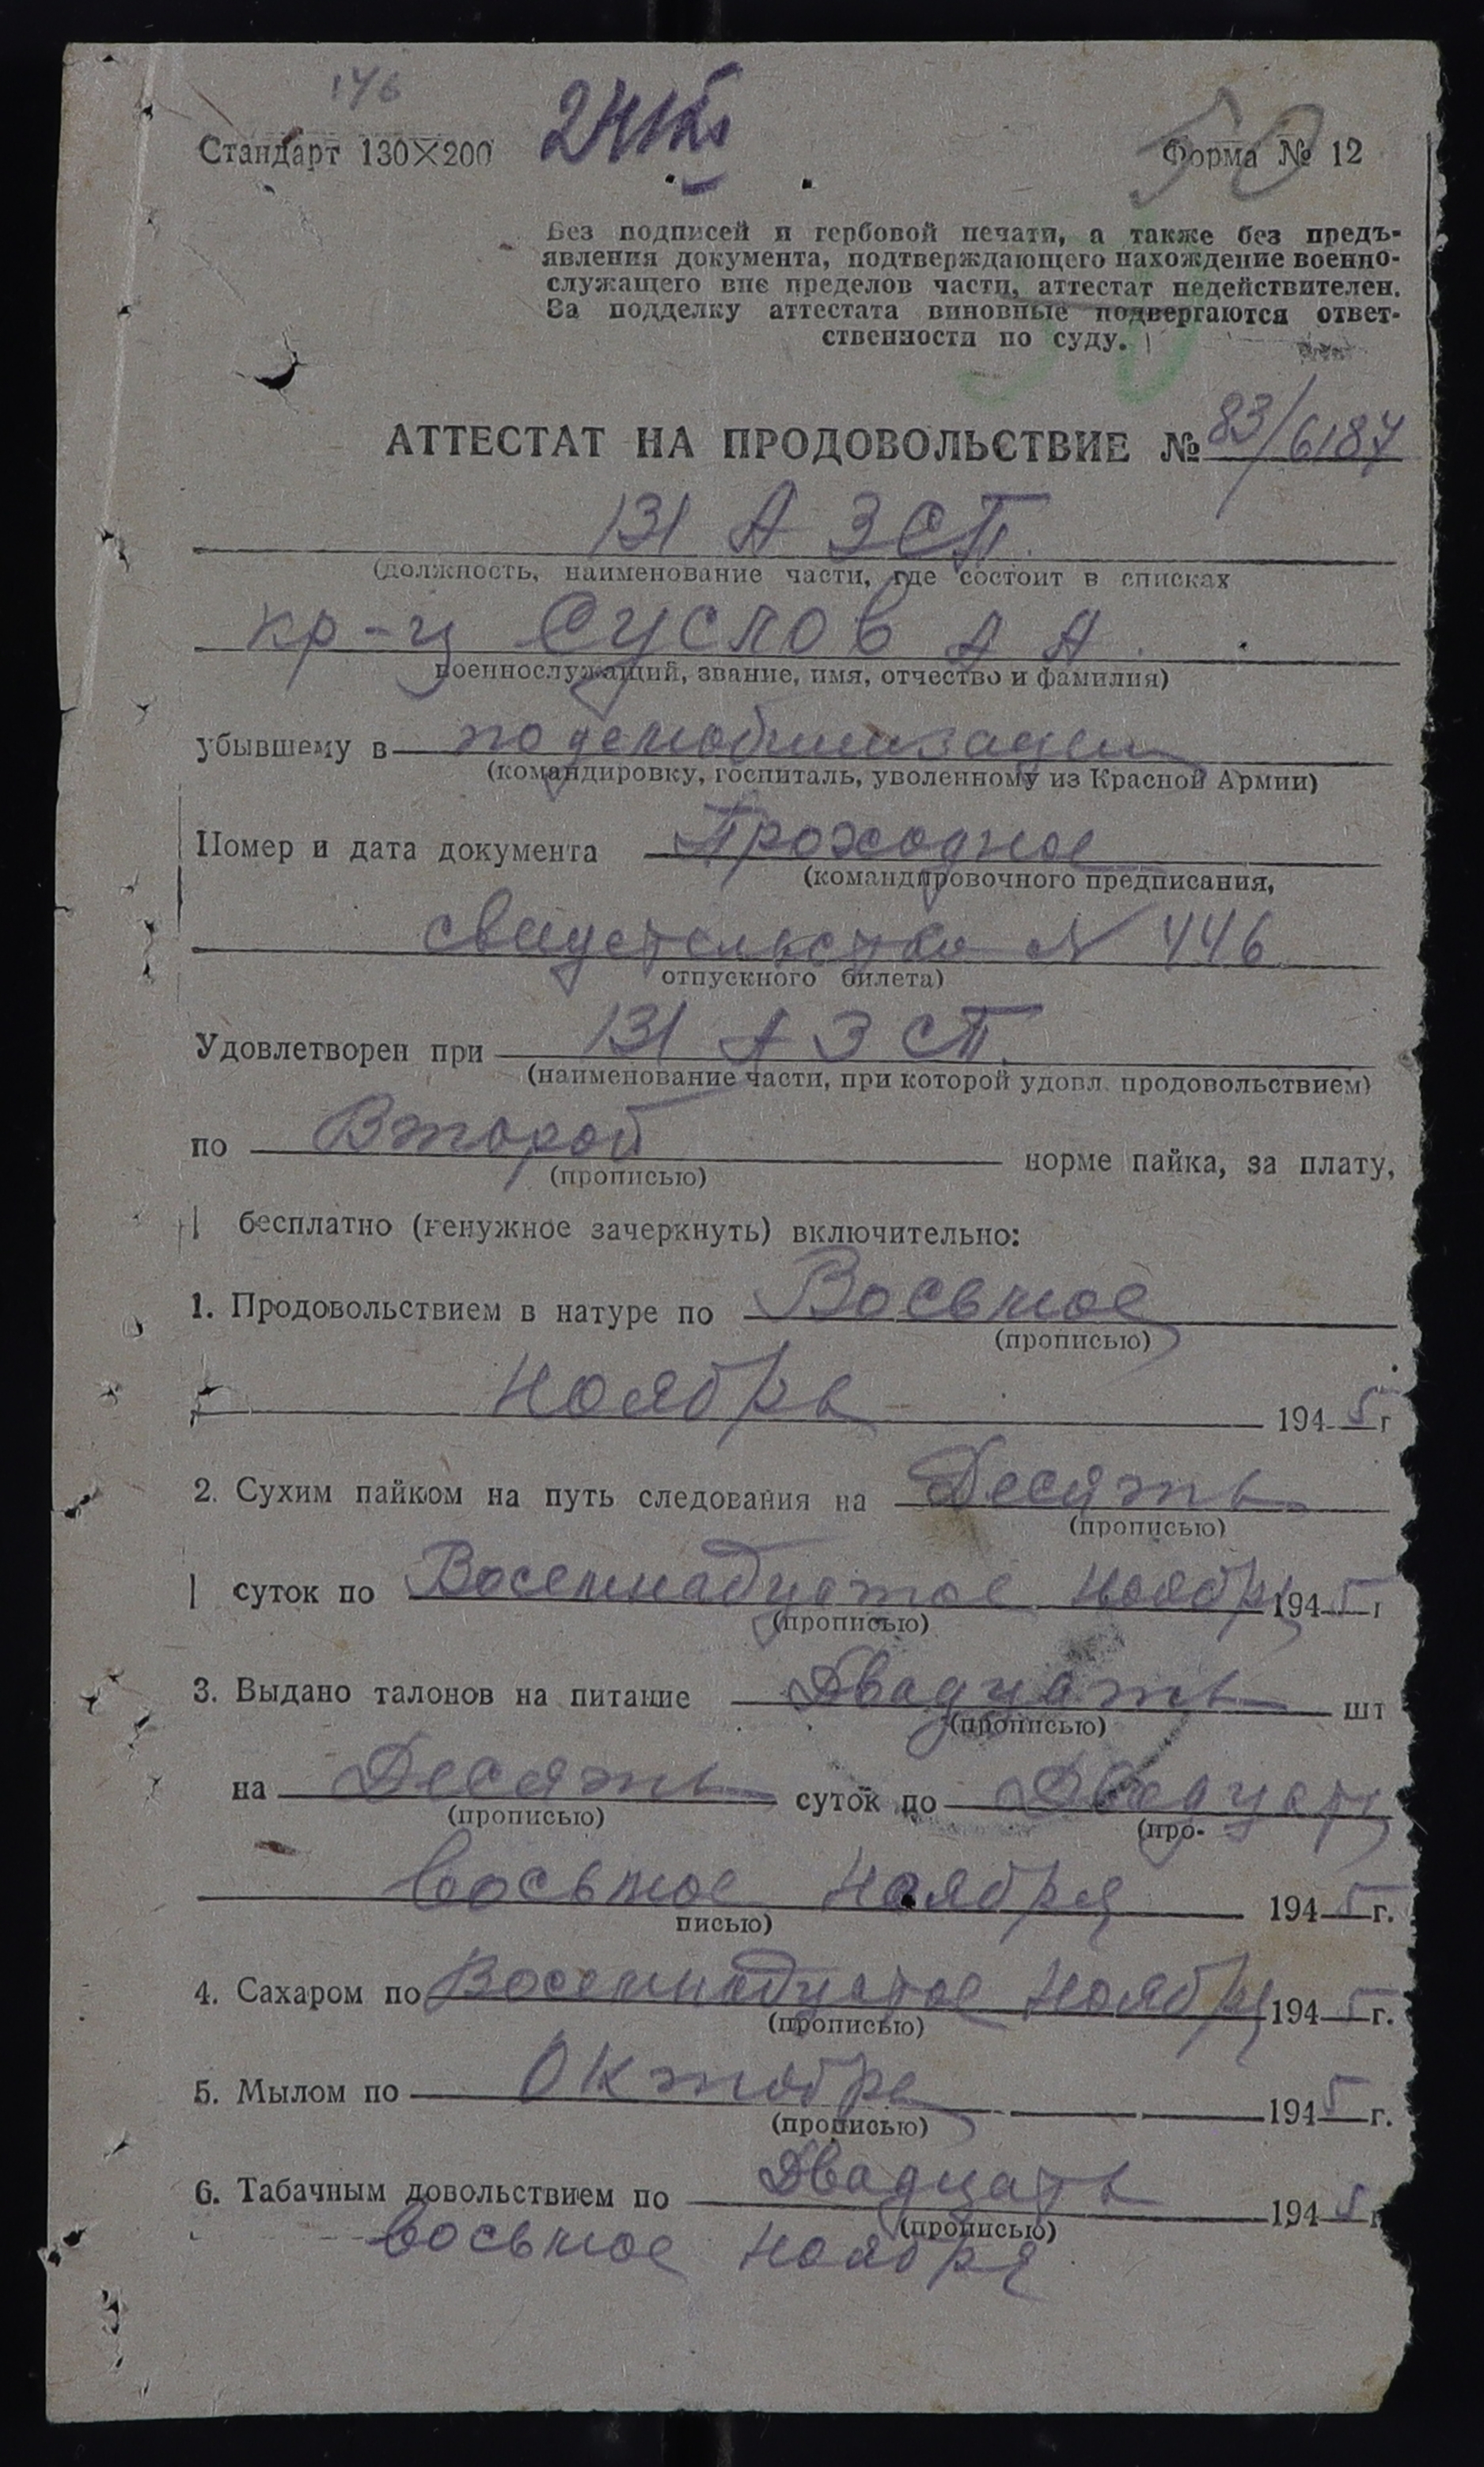 146
Стандарт 130×200
Форма № 12
50
Без подписей и гербовой печати, а также без предъ-
явления документа, подтверждающего нахождение военно-
служащего вне пределов части, аттестат недействителен.
За подделку аттестата виновные подвергаются ответ-
ственности по суду.
АТТЕСТАТ НА ПРОДОВОЛЬСТВИЕ № 83/6187
131 А З СП.
(должность, наименование части, где состоит в списках
кр-ц Суслов А А.
военнослужащий, звание, имя, отчество и фамилия)
убывшему в по демобилизации
(командировку, госпиталь, уволенному из Красной Армии)
Номер и дата документа Проходное
(командировочного предписания,
свидетельство N 446
отпускного билета)
Удовлетворен при 131 А З СП.
(наименование части, при которой удовл. продовольствием)
по Второй норме пайка, за плату,
(прописью)
бесплатно (ненужное зачеркнуть) включительно:
1. Продовольствием в натуре по Восьмое
(прописью)
ноября 1945 г
2. Сухим пайком на путь следования на Десять
(прописью)
суток по Восемнадцатое ноября 1945 г
(прописью)
3. Выдано талонов на питание Двадцать шт
(прописью)
на Десять суток по Двадцать
(прописью) (про-
восьмое ноября 1945 г.
писью)
4. Сахаром по Восемнадцатое ноября 1945 г.
(прописью)
5. Мылом по Октябрь 1945 г.
(прописью)
6. Табачным довольствием по Двадцать 1945 г
(прописью)
восьмое ноября